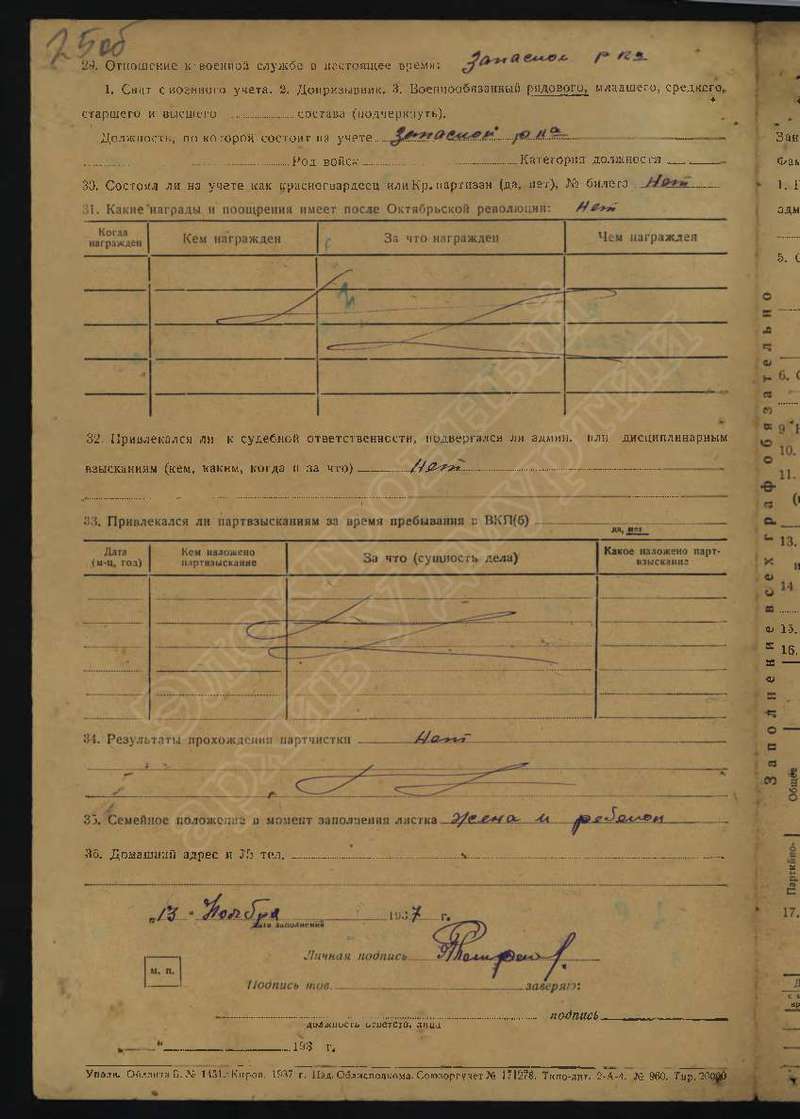 25об
29. Отношение к военной службе в настоящее время: Запасной рка
1. Снят с военного учета. 2. Допризывник. 3. Военнообязанный рядового, младшего, среднего,
старшего и высшего состава (подчеркнуть).
Должность, по которой состоит на учете
Род войск Категория должности
30. Состоял ли на учете как красногвардеец или Кр. партизан (да, нет), № билета Нет
31. Какие награды и поощрения имеет после Октябрьской революции: Нет
Когда награжден Кем награжден За что награжден Чем награжден
32. Привлекался ли к судебной ответственности, подвергался ли админ. или дисциплинарным
взысканиям (кем, каким, когда и за что) Нет
33. Привлекался ли партвзысканиям за время пребывания в ВКП(б)
да, нет
Дата (м-ц, год) Кем наложено партвзыскание За что (сущность дела) Какое наложено партвзыскание
34. Результаты прохождения партчистки Нет
35. Семейное положение в момент заполнения листка Жена и ребенок
36. Домашний адрес и № тел.
"13" Ноября 1937 г.
дата заполнения
Личная подпись
М. П.
Подпись тов. заверяю:
подпись
должность ответств. лица
"" 193 г.
Уполн. Обллита Б. № 1451. Киров, 1937 г. Изд. Облисполкома. Типо-лит. № 960. Тир.
Заполнение всех граф обязательно
Общее
17.